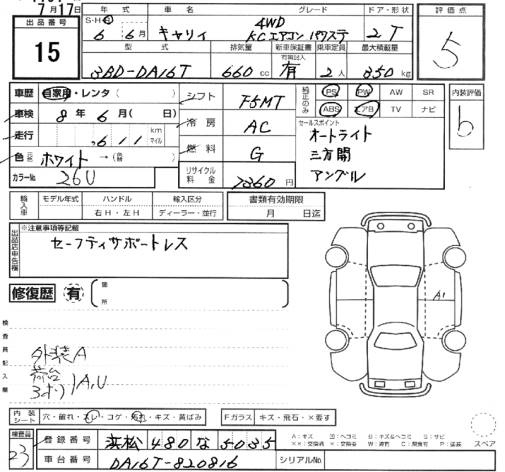 7月17日
出品番号
15
年式 車名 グレード ドア・形状
S・H・R 6年6月 キャリィ 4WD KCエアコン パワステ 2 T
型式 排気量 新車保証書 乗車定員 最大積載量
3BD-DA16T 660cc 有 2人 350kg
評価点
5
内装評価
b
車歴 自家用・レンタ( )
車検 8年6月( 日)
走行 ,611 km マイル
色(元色) ホワイト →(替色)
カラーNo. 26U
シフト F5MT
冷房 AC
燃料 G
リサイクル料金 7860円
純正のみ
PS PW AW SR
ABS エアB TV ナビ
セールスポイント
オートライト
三方開
アングル
輸入車
モデル年式 ハンドル 輸入区分
右H・左H ディーラー・並行
書類有効期限
月 日迄
出品店申告欄
※注意事項等記載
セーフティサポートレス
修復歴 有
箇所
検査員記入欄
外装A
荷台
3方)A,U
A1
内装シート 穴・破れ・スレ・コゲ・汚れ・キズ・黄ばみ
Fガラス キズ・飛石・×要す
スペア
検査員
23
登録番号 浜松480な5035
車台番号 DA16T-820816
シリアルNo.